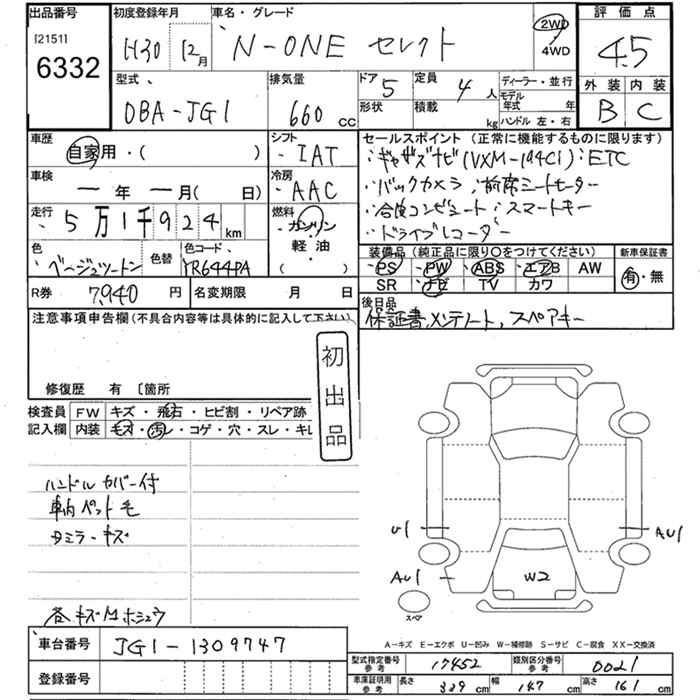 出品番号 初度登録年月 車名・グレード 評価点
[2151] 6332 H30 12月 N-ONE セレクト 2WD 4WD 4.5
型式 排気量 ドア 定員 ディーラー・並行 外装 内装
DBA-JG1 660 cc 5 4人 モデル年式 年 B C
形状 積載 kg ハンドル 左・右
車歴 シフト セールスポイント (正常に機能するものに限ります)
自家用・( ) IAT ・ギャザズナビ(VXM-194Ci) ・ETC
車検 冷房 ・バックカメラ ・前席シートヒーター
ー年ー月(日) AAC ・合皮コンビシート ・スマートキー
走行 燃料 ・ドライブレコーダー
5万1千924km ガソリン
色 色替 色コード 軽油 装備品(純正品に限り〇をつけてください) 新車保証書
ベージュツートン YR644PA ・( ) PS PW ABS エアB AW 有・無
R券 7,940円 名変期限 月 日 SR ナビ TV カワ
注意事項申告欄(不具合内容等は具体的に記入して下さい) 後日品
保証書,メンテノート,スペアキー
初出品
修復歴 有 〔箇所
検査員 FW キズ・飛石・ヒビ割・リペア跡
記入欄 内装 キズ・汚レ・コゲ・穴・スレ・キレ
ハンドルカバー付
車内ペット毛
タミラーキズ
U1 AU1
AU1 W2
スペア
各キズM ホシュウ
A-キズ E-エクボ U-凹み W-補修跡 S-サビ C-腐食 XX-交換済
車台番号 JG1-1309747
型式指定番号 参考 17452 類別区分番号 参考 0021
登録番号
車庫証明用 参考 長さ 339cm 幅 147cm 高さ 161cm